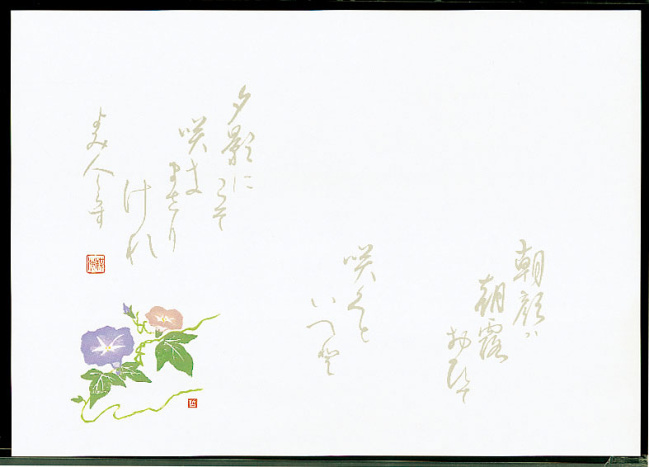 朝顔ハ
朝露
おひて
咲くと
いへど
夕影に
こそ
咲き
まさり
けれ
よみ人しらす